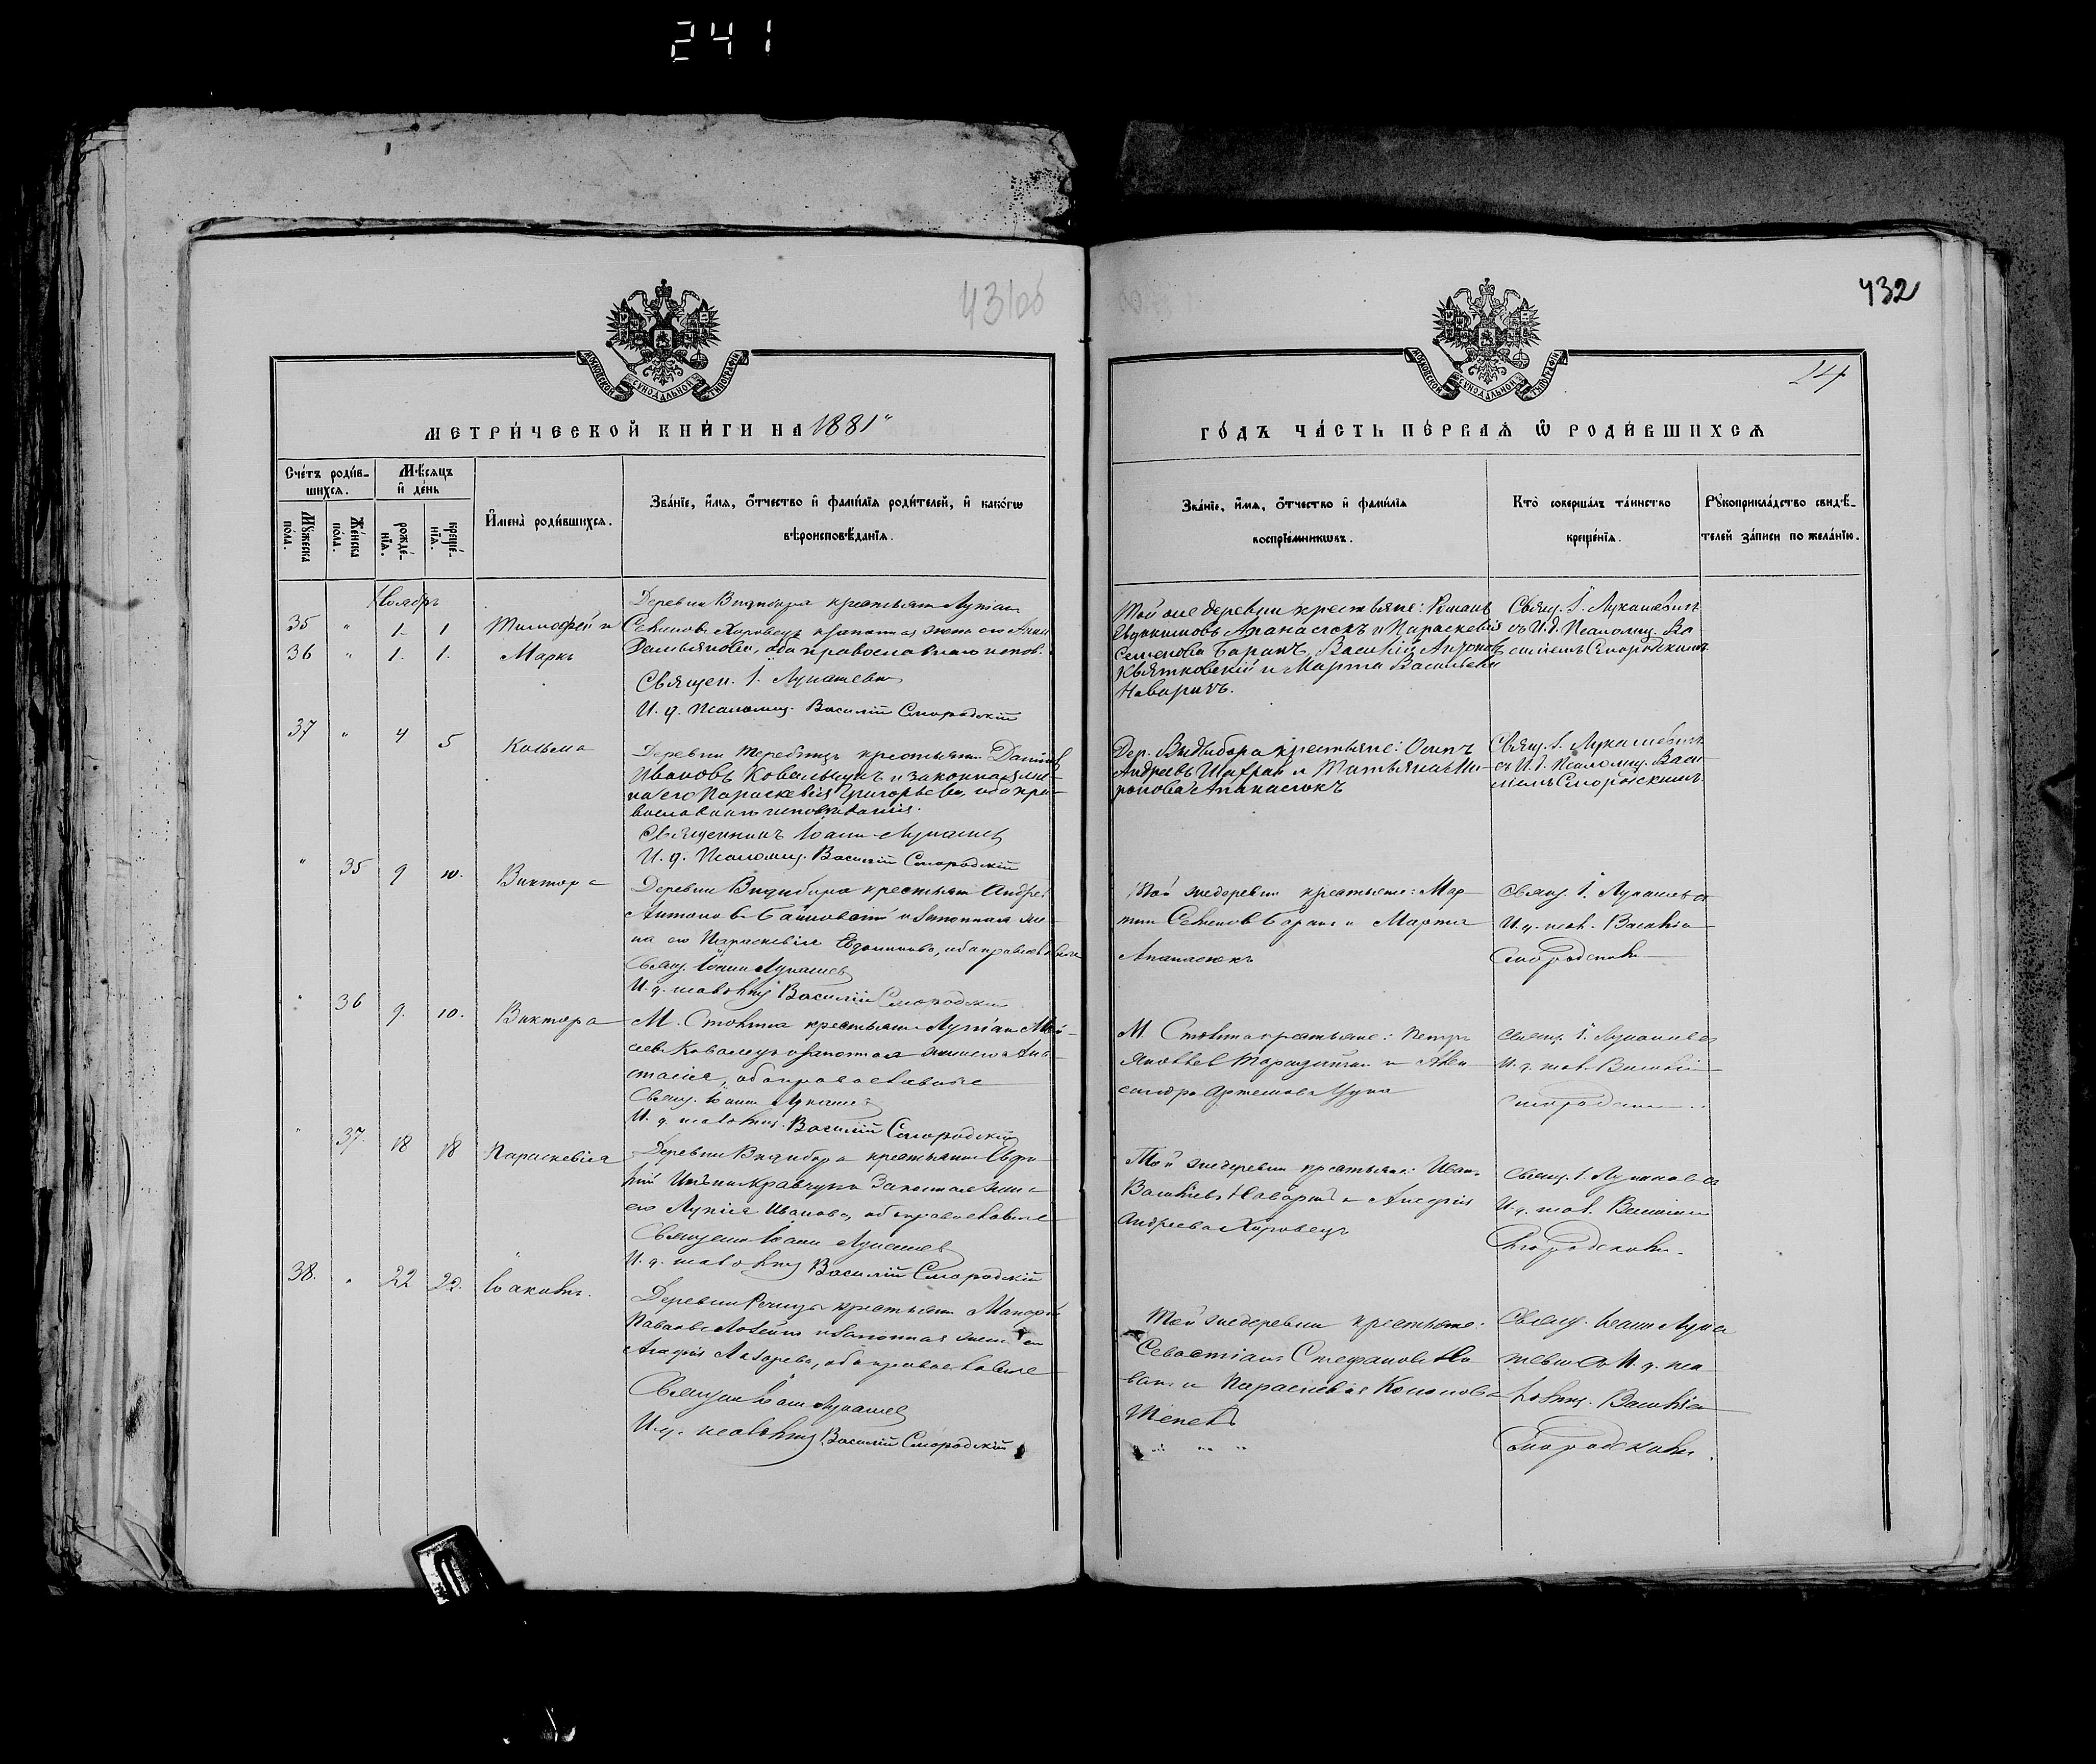 241
431об
432
24
МОСКОВСКОЙ СѴНОДАЛЬНОЙ ТИПОГРАФІИ
МОСКОВСКОЙ СѴНОДАЛЬНОЙ ТИПОГРАФІИ
МЕТРИ́ЧЕСКОЙ КНИ́ГИ НА 1881
ГО́ДЪ ЧА́СТЬ ПЕ́РВАѦ Ѡ҆ РОДИ́ВШИХСѦ
Сче́тъ роди́в-
шихсѧ.
Мѣ́сѧцъ
и҆ де́нь
Мꙋ́жеска
по́ла.
Же́нска
по́ла.
рожде́-
нїѧ.
креще́-
нїѧ.
И҆мена̀ роди́вшихсѧ.
Зва́нїе, и҆́мѧ, ѻ҆́тчество и҆ фами́лїѧ роди́телей, и҆ како́гѡ
вѣроисповѣ́данїѧ.
Зва́нїе, и҆́мѧ, ѻ҆́тчество и҆ фами́лїѧ
воспрїе́мникѡвъ.
Кто̀ соверша́лъ та́инство
креще́нїѧ.
Рꙋкоприкла́дство свидѣ́-
телей за́писи по жела́нїю.
Ноябрь
35 " 1. 1 Тимофей и
36 " 1. 1. Маркъ
Деревни Видибора крестьян Лукіан
Семенов Хоровецъ и законная жена его Анна
Демьянова, оба православнаго испов.
Священ. І. Лукашевич
И. д. Псаломщ. Василій Смородскій
Той же деревни крестьяне: Роман
Евдокимовъ Апанасюкъ и Параскевія
Семенова Баранъ, Василій Андреев
Квятковскій и Марта Васильева
Наваричъ.
Свящ. І. Лукашевичъ
съ И. д. Псаломщ. Ва
силіемъ Смородскимъ
37 " 4 5 Козьма
Деревни Теребежъ крестьянин Даниил
Ивановъ Ковальчукъ и законная же-
на его Параскевія Григорьева, оба пра-
вославнаго исповѣданія.
Священникъ Іоанн Лукашев
И. д. Псаломщ. Василій Смородскій
Дер. Видибора крестьяне: Осипъ
Андреевъ Шафран и Татьяна Ми-
ронова Апанасюкъ
Свящ. І. Лукашевичъ
съ И. д. Псаломщ. Васи
ліемъ Смородскимъ
" 35 9 10. Виктора
Деревни Видибора крестьян Андрей
Антонов и законная же-
на его Параскевія Евдокимова, оба православные
Свящ. Іоанн Лукашев
И. д. псаломщ. Василій Смородскій
Той же деревни крестьяне: Мар
тин Семенов Баран и Марта
Апанасюкъ
Свящ. І. Лукашевич
И. д. псал. Василіем
Смородским
" 36 9. 10. Виктора
М. Столина крестьян Лукіан
Ковалецъ и законная жена его Ана-
стасія, оба православные
Свящ. Іоанн Лукашев
И. д. псаломщ. Василій Смородскій
М. Столина крестьяне: Петръ
Яковлев и Алек
сандра Артемова
Свящ. І. Лукашевич
И. д. псал. Василіем
Смородским
" 37. 18 18 Параскевіа
Деревни Видибора крестьянин
Кравчук и законная жена
его Лукія Иванова, оба православные
Священник Іоанн Лукашев
И. д. псаломщ. Василій Смородскій
Той же деревни крестьяне: Иван
Васильев Наварич и Агафія
Андреева Хоровецъ
Свящ. І. Лукашевич
И. д. псал. Василіем
Смородским.
38. " 22 22. Іаковъ.
Деревни крестьян
Павлов и законная жена его
Агафія Лазарева, оба православные
Священник Іоанн Лукашев
И. д. псаломщ. Василій Смородскій
Той же деревни крестьяне:
Севастіан Стефанов
и Параскевія Кононова
Свящ. Іоанн Лука
шевич И. д. пса
ломщ. Василіем
Смородским.